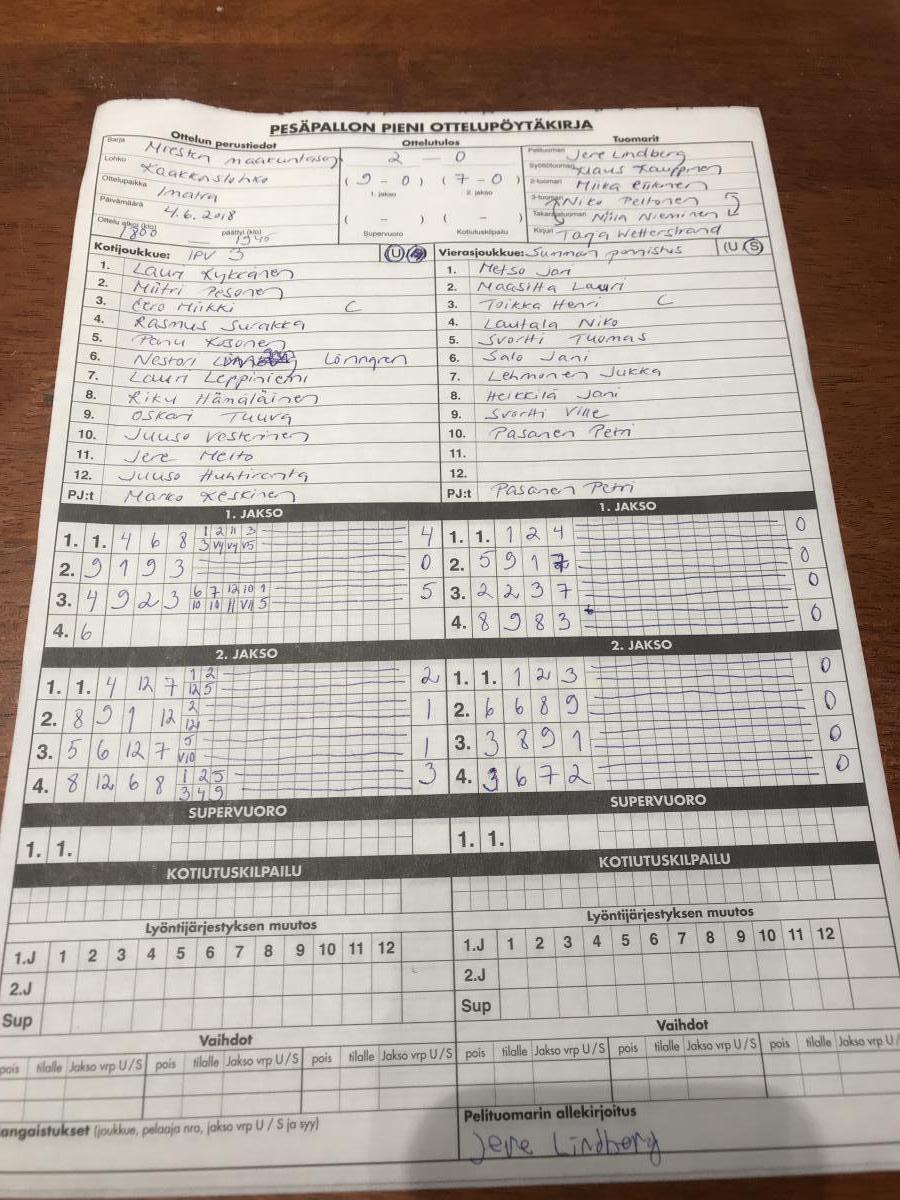 PESÄPALLON PIENI OTTELUPÖYTÄKIRJA
Ottelun perustiedot
Sarja Miesten maakuntasarj
Lohko Kaakkoslohko
Ottelupaikka Imatra
Päivämäärä 4.6.2018
Ottelu alkoi (klo) 1800 päättyi (klo) 1945
Ottelutulos
2 - 0
(9-0) (7-0)
1. jakso 2. jakso
( - ) ( - )
Supervuoro Kotiutuskilpailu
Tuomarit
Pelituomari Jere Lindberg
Syöttötuomari Klaus Kauppinen
2-tuomari Miika
3-tuomari Niko Peltonen
Takarajatuomari Niila Nieminen
Kirjuri Taga Wetterstrand
Kotijoukkue: IPV 3 (U/S)
1. Lauri Kykkänen
2. Miitri Pesonen
3. Eero Miikki C
4. Rasmus Surakka
5. Panu Kosonen
6. Nestori Lönngren
7. Lauri Leppiniemi
8. Riku Hämäläinen
9. Oskari Tuuva
10. Juuso Vesterinen
11. Jere Meito
12. Juuso Huhtiranta
PJ:t Marko Keskinen
Vierasjoukkue: Summan ponnistus (U/S)
1. Metso Jari
2. Maasilta Lauri
3. Toikka Henri C
4. Lautala Niko
5. Svortti Tuomas
6. Salo Jani
7. Lehmonen Jukka
8. Heikkilä Jani
9. Svortti Ville
10. Pasanen Petri
11.
12.
PJ:t Pasanen Petri
1. JAKSO
1. 1. 4 6 8 1 2 11 3 4
3 V4 V4 V5
2. 9 1 9 3 0
3. 4 9 2 3 6 7 12 10 1 5
10 10 11 V11 5
4. 6
1. JAKSO
1. 1. 1 2 4 0
2. 5 9 1 7 0
3. 2 2 3 7 0
4. 8 9 8 3 0
2. JAKSO
1. 1. 4 12 7 1 2 2
12 5
2. 8 9 1 12 2 1
12
3. 5 6 12 7 5 1
V10
4. 8 12 6 8 1 2 5 3
3 4 9
2. JAKSO
1. 1. 1 2 3 0
2. 6 6 8 9 0
3. 3 8 9 1 0
4. 3 6 7 2 0
SUPERVUORO
1. 1.
SUPERVUORO
1. 1.
KOTIUTUSKILPAILU
KOTIUTUSKILPAILU
Lyöntijärjestyksen muutos
1.J 1 2 3 4 5 6 7 8 9 10 11 12
2.J
Sup
Lyöntijärjestyksen muutos
1.J 1 2 3 4 5 6 7 8 9 10 11 12
2.J
Sup
Vaihdot
pois tilalle Jakso vrp U/S pois tilalle Jakso vrp U/S pois tilalle Jakso vrp U/S
Vaihdot
pois tilalle Jakso vrp U/S pois tilalle Jakso vrp U/S pois tilalle Jakso vrp U/
angaistukset (joukkue, pelaaja nro, jakso vrp U / S ja syy)
Pelituomarin allekirjoitus
Jere Lindberg